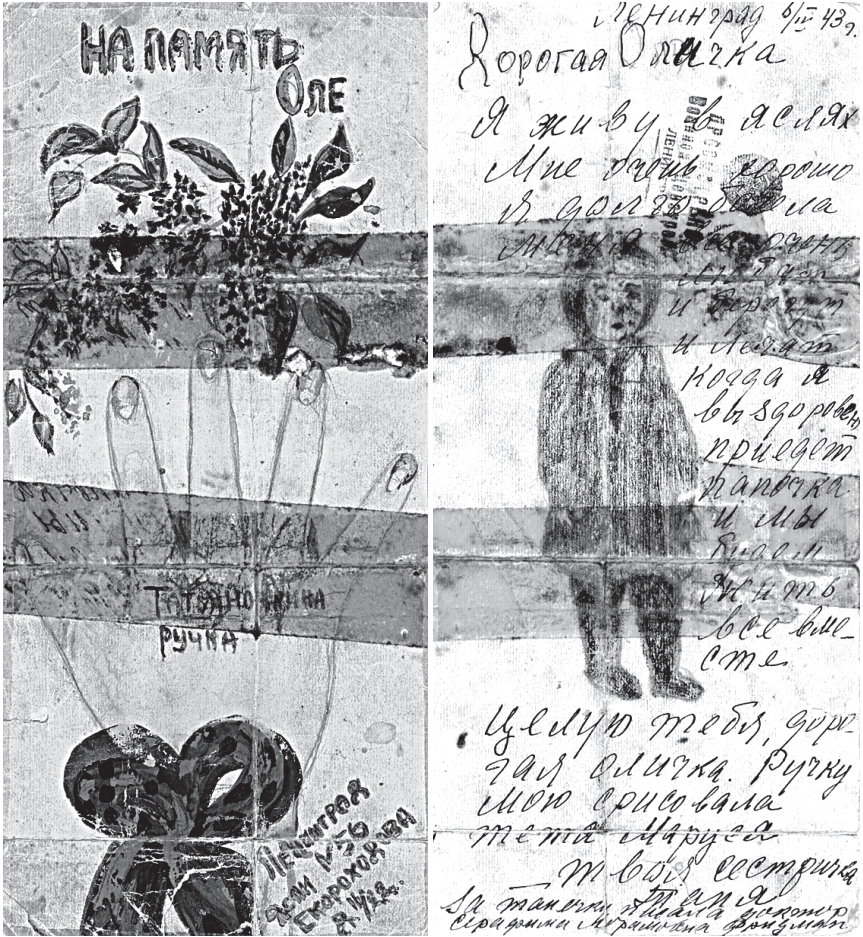 НА ПАМЯТЬ
ОЛЕ
ТАТЬЯНОЧКИНА
РУЧКА
ЛЕНИНГРАД
ЯСЛИ №56
СКОРОХОДОВА
Ленинград 6/IV 43 г.
Дорогая Оличка
Я живу в яслях
Мне очень хорошо
Я долго болела
меня все очень
любят
и берегут
и лечат
когда я
выздоровею
приедет
папочка
и мы
будем
жить
все вме-
сте
Целую тебя, доро-
гая оличка. Ручку
мою срисовала
тетя Маруся
твоя сестричка
Таня
за танечку писала доктор
Серафима